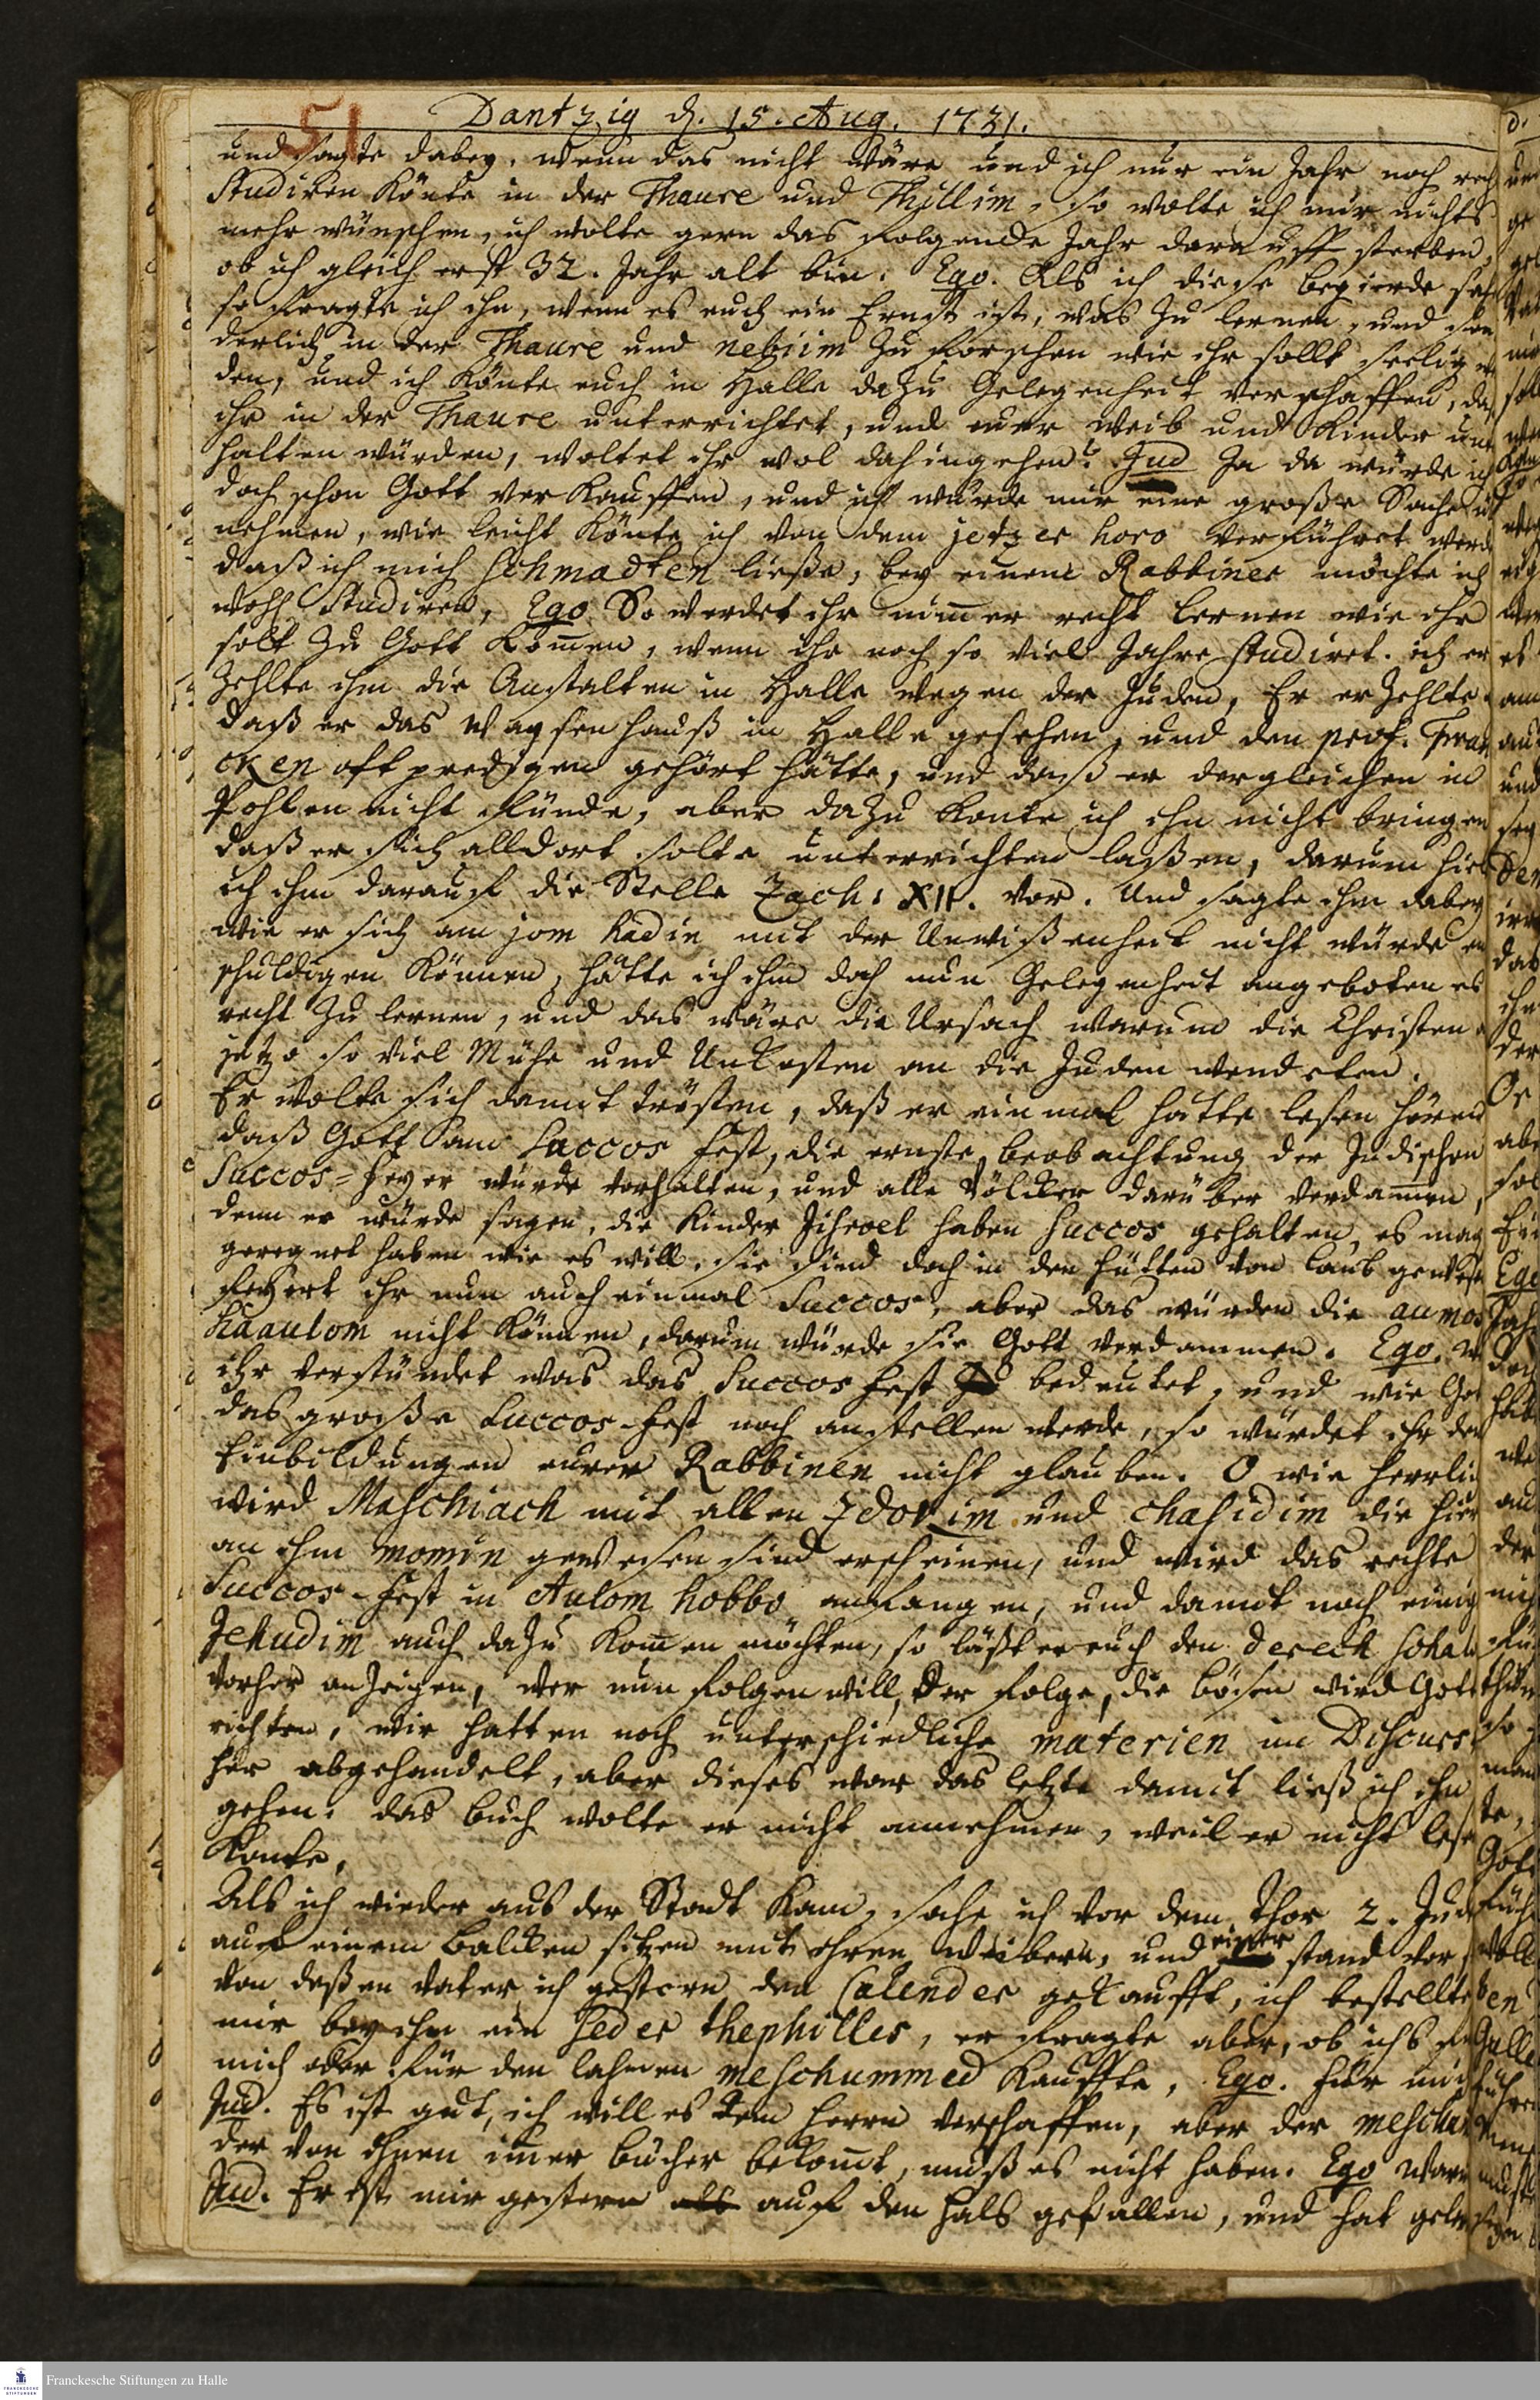 51
Dantzig d. 15. Aug. 1731.
und sagte dabey, wenn das nicht wäre und ich nur ein Jahr noch rech
Studiren Könte in der Thaure und Thillim, so wolte ich mir nichts
mehr wünschen, ich wolte gern das folgende Jahr darauff sterben,
ob ich gleich erst 32. Jahr alt bin. Ego. Als ich diese begierde sah
so fragte ich ihn, wenn es euch ein Ernst ist, was zu lernen, und son
derlich in der Thaure und nebiim zu forschen wie ihr sollt seelig we
den, und ich Könte euch in Halle dazu Gelegenheit verschaffen, daß
ihr in der Thaure unterrichtet, und euer Weib und Kinder unter
halten würden, woltet ihr wol dahingehen? Jud Ja da würde ich
doch schon Gott verkauffen, und ich würde mir eine große Sache
nehmen, wie leicht Könte ich von dem jetzer horo verführet werd
daß ich mich schmadten ließe, bey einem Rabbiner möchte ich
wohl Studiren, Ego So werdet ihr nimer recht lernen wie ihr
solt zu Gott Komen, wenn ihr noch so viel Jahre studiret. ich er
zehlte ihm die Anstalten in Halle wegen der Juden, Er erzehlte
daß er das Waysenhauß in Halle gesehen, und den prof. Fran
cken oft predigen gehört hätte, und daß er dergleichen in
Pohlen nicht finde, aber dazu Konte ich ihn nicht bringen
daß er sich alldort solte unterrichten laßen, darum hiel
ich ihm darauf die Stelle Zach. XII. vor. Und sagte ihm dabey
wie er sich am jom hadin mit der Unwißenheit nicht würde en
schuldigen Können, hätte ich ihm doch nun Gelegenheit angeboten es
recht zu lernen, und das wäre die Ursach warum die Christen
jetzo so viel Mühe und Unkosten an die Juden wendeten.
Er wolte sich damit trösten, daß er einmal hatte lesen hören
daß Gott am Succos fest, die ernste beobachtung der Jüdischen
Succos-feyer würde vorhalten, und alle Völcker darüber verdamen,
denn er würde sagen, die Kinder Jisroel haben Succos gehalten, es mag
geregnet haben wie es will, sie sind doch in den Hütten von Laub gewese
feyert ihr nun auch einmal Succos, aber das würden die aumos
haaulom nicht Können, darum würde sie Gott verdammen. Ego. w
ihr verstündet was das Succos fest bedeutet, und wie Got
das große Succos-fest noch anstellen werde, so würdet ihr den
Einbildungen eurer Rabbinen nicht glauben. O wie herrlic
wird Maschiach mit allen Zdokim und Chasidim die hier
an ihm momin gewesen sind erscheinen, und wird das rechte
Succos-fest in Aulom hobbo anfangen, und damit noch einig
Jehudim auch dazu Komen möchten, so läßt er euch den derech
vorher anzeigen, wer nun folgen will, der folge, die bösen wird Gott
richten, wir hatten noch unterschiedliche materien im Discurs
her abgehandelt, aber dieses war das letzte damit ließ ich ihn
gehen. das buch wolte er nicht annehmen, weil er nicht lese
Konte.
Als ich wieder aus der Stadt Kam, sahe ich vor dem Thor 2. Jud
auf einem Balcken sitzen mit ihren Weibern, und einer stand vor
von deßen Vater ich gestern den Calender gekaufft, ich bestellte
mir bey ihm ein Seder thephilles, er fragte aber, ob ichs
mich oder für den lahmen meschummed Kauffte, Ego. für mic
Jud. Es ist gut, ich will es dem Herrn verschaffen, aber der meschu
der von ihnen imer bücher bekomt, muß es nicht haben. Ego Waru
Jud. Er ist mir gestern auf den hals gefallen, und hat
Franckesche Stiftungen zu Halle